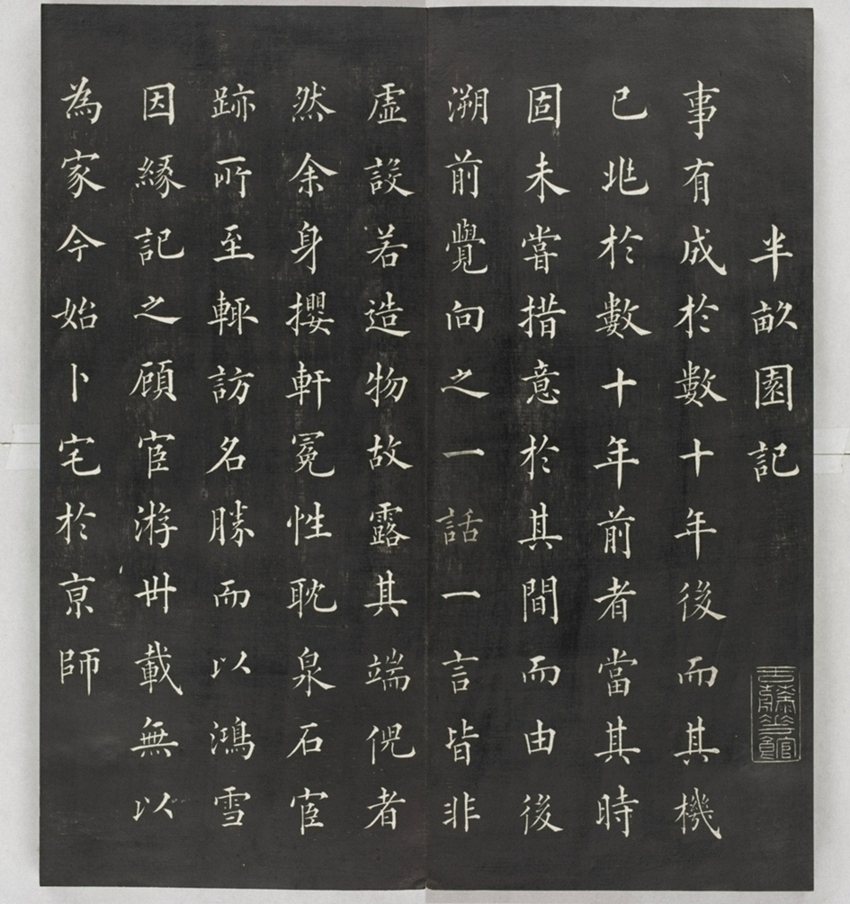 半畝園記
事有成於數十年後而其機
已兆於數十年前者當其時
固未嘗措意於其間而由後
溯前覺向之一話一言皆非
虛設若造物故露其端倪者
然余身攖軒冕性耽泉石宦
跡所至輒訪名勝而以鴻雪
因緣記之顧宦游卅載無以
為家今始卜宅於京師